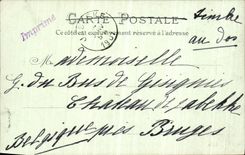 Imprimé
CARTE POSTALE
Ce côté est exclusivement réservé à l'adresse
timbre
au dos
Mademoiselle
G. du Bus de
Château de
Belgique près Bruges